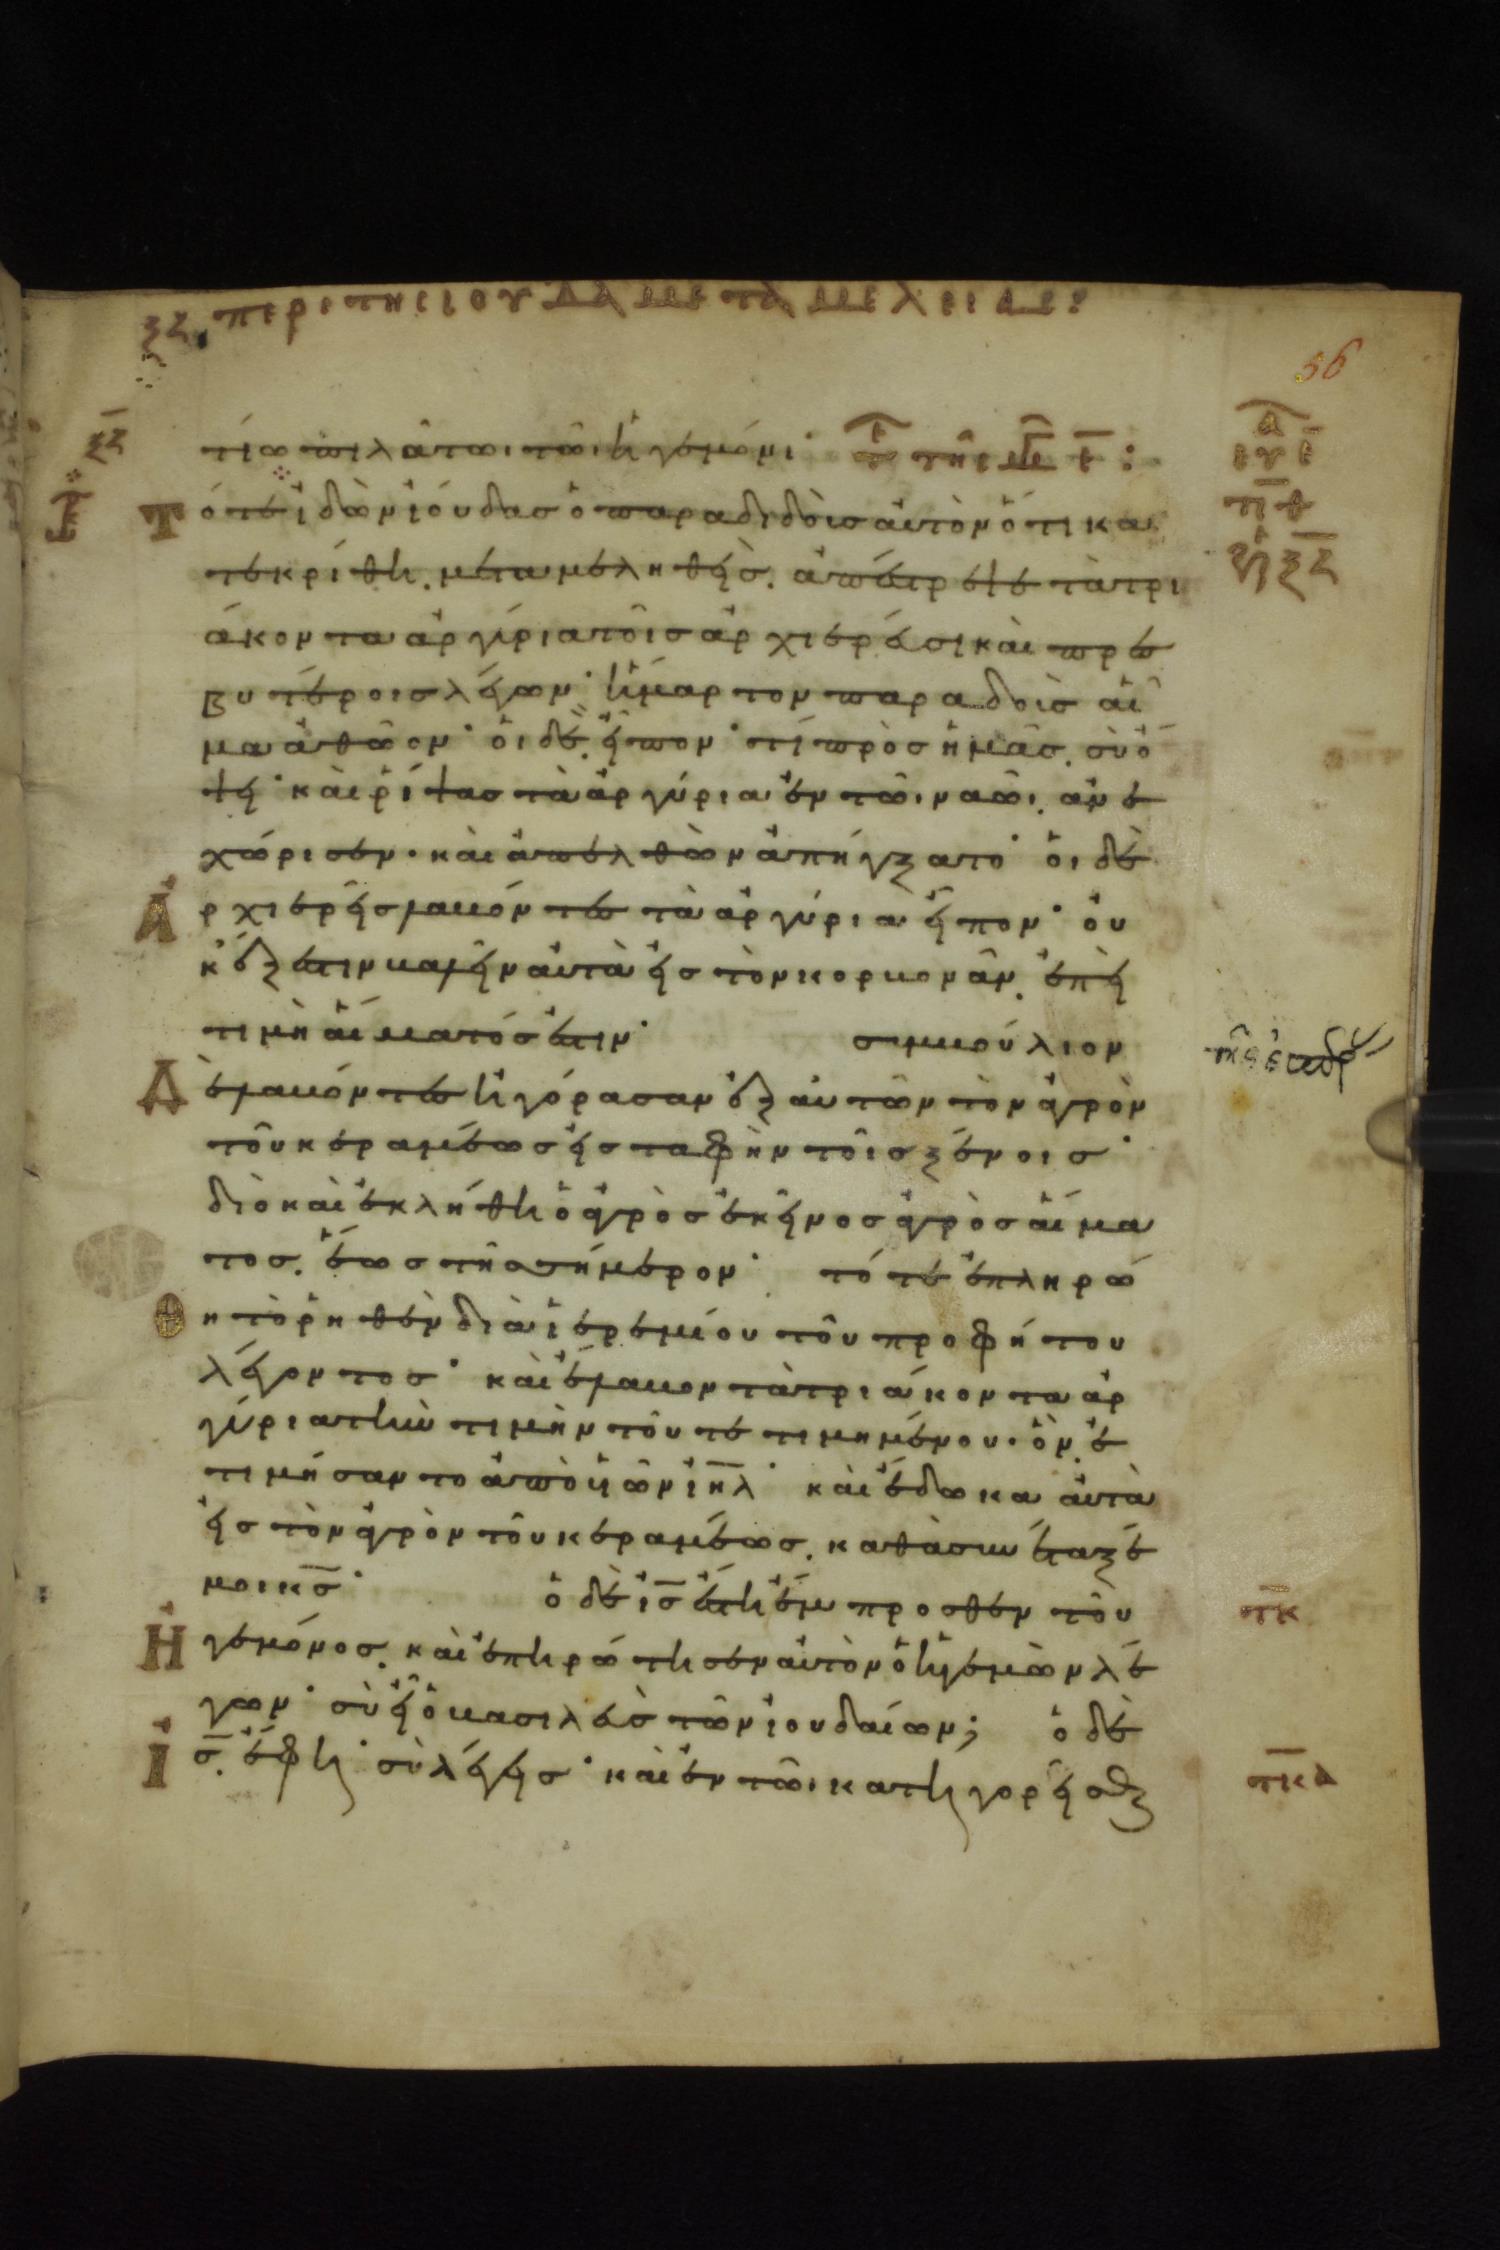 ξζ περι της ιουδα μεταμελειας:
56
τίω πιλάτωι τῶι ἡγεμόνι·
ξζ
Τότε ἰδὼν ἰούδας ὁ παραδιδοὺς αὐτὸν ὅτι κα
τεκρίθη. μεταμεληθεὶς. ἀπέστρεψε τὰ τρι
άκοντα ἀργύρια τοῖς ἀρχιερεῦσι καὶ πρεσ
βυτέροις λέγων· ἥμαρτον παραδοὺς αἷ
μα ἀθῶον· οἱ δὲ εἶπον· τί πρὸς ἡμᾶς. σὺ ὄ
ψει· καὶ ῥίψας τὰ ἀργύρια ἐν τῶι ναῶι. ἀνε
χώρισεν· καὶ ἀπελθὼν ἀπήγξατο· οἱ δὲ
Ἀρχιερεῖς λαβόντες τὰ ἀργύρια εἶπον· οὐ
κ ἔξεστιν βαλεῖν αὐτὰ εἰς τὸν κορβονᾶν. ἐπεὶ
τιμὴ αἵματός ἐστιν· συμβούλιον
Δὲ λαβόντες ἠγόρασαν ἐξ αὐτῶν τὸν ἀγρὸν
τοῦ κεραμέως εἰς ταφὴν τοῖς ξένοις·
διὸ καὶ ἐκλήθη ὁ ἀγρὸς ἐκεῖνος ἀγρὸς αἵμα
τος. ἕως τῆς σήμερον· τότε ἐπληρώ
Θη τὸ ῥηθὲν διὰ ἱερεμίου τοῦ προφήτου
λέγοντος· καὶ ἔλαβον τὰ τριάκοντα ἀρ
γύρια τὴν τιμὴν τοῦ τετιμημένου· ὃν ἐ
τιμήσαντο ἀπὸ υἱῶν ἰηλ· καὶ ἔδωκα αὐτὰ
εἰς τὸν ἀγρὸν τοῦ κεραμέως. καθὰ συνέταξέ
μοι κς· ὁ δὲ ις ἔστη ἔμπροσθεν τοῦ
τκ
Ἡγεμόνος. καὶ ἐπηρώτησεν αὐτὸν ὁ ἡγεμὼν λέ
γων· σὺ εἶ ὁ βασιλεὺς τῶν ἰουδαίων; ὁ δὲ
Ἰς. ἔφη· σὺ λέγεις· καὶ ἐν τῶι κατηγορεῖσθαι
τκα